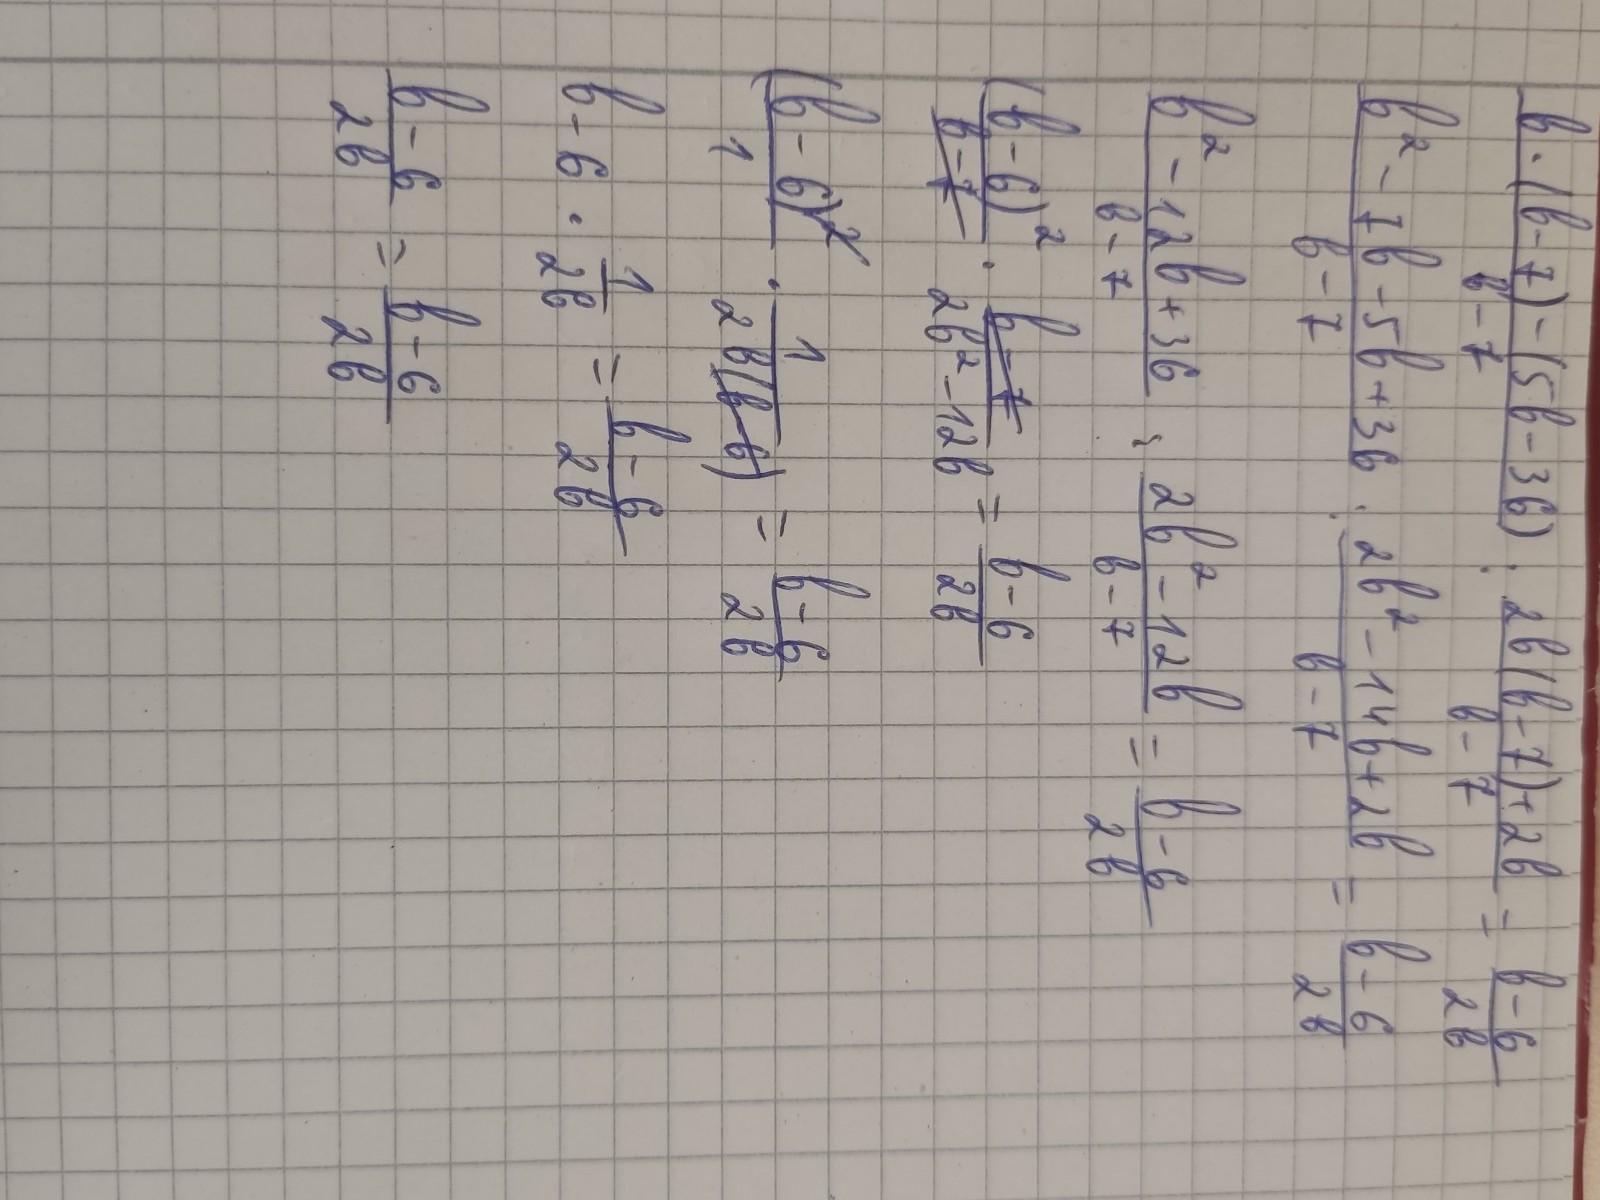 (b·(b-7)-(5b-36))/(b-7) : (2b(b-7)+2b)/(b-7) = (b-6)/(2b)
(b²-7b-5b+36)/(b-7) : (2b²-14b+2b)/(b-7) = (b-6)/(2b)
(b²-12b+36)/(b-7) : (2b²-12b)/(b-7) = (b-6)/(2b)
(b-6)²/(b-7) · (b-7)/(2b²-12b) = (b-6)/(2b)
(b-6)²/1 · 1/(2b(b-6)) = (b-6)/(2b)
b-6 · 1/(2b) = (b-6)/(2b)
(b-6)/(2b) = (b-6)/(2b)